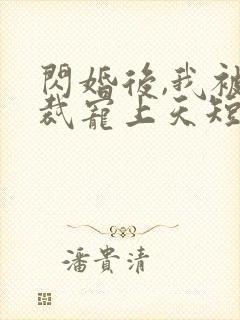 閃婚後,我被
裁寵上天短
潘貴清